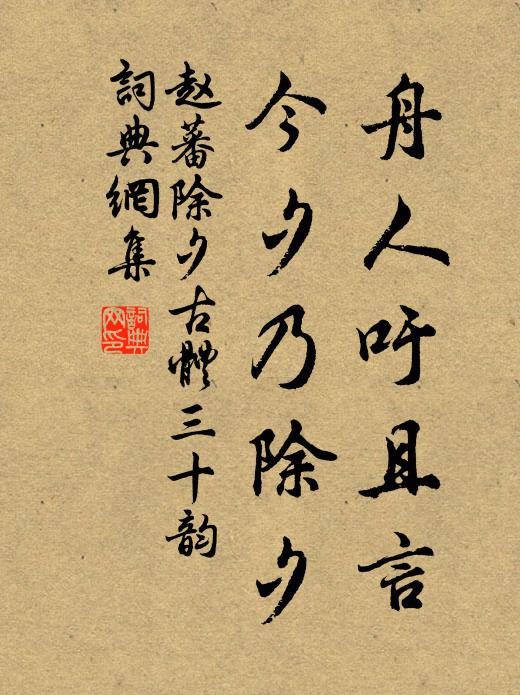 舟人吁且言
今夕乃除夕
赵蕃除夕古體三十韵
詞典網集
詞典网印